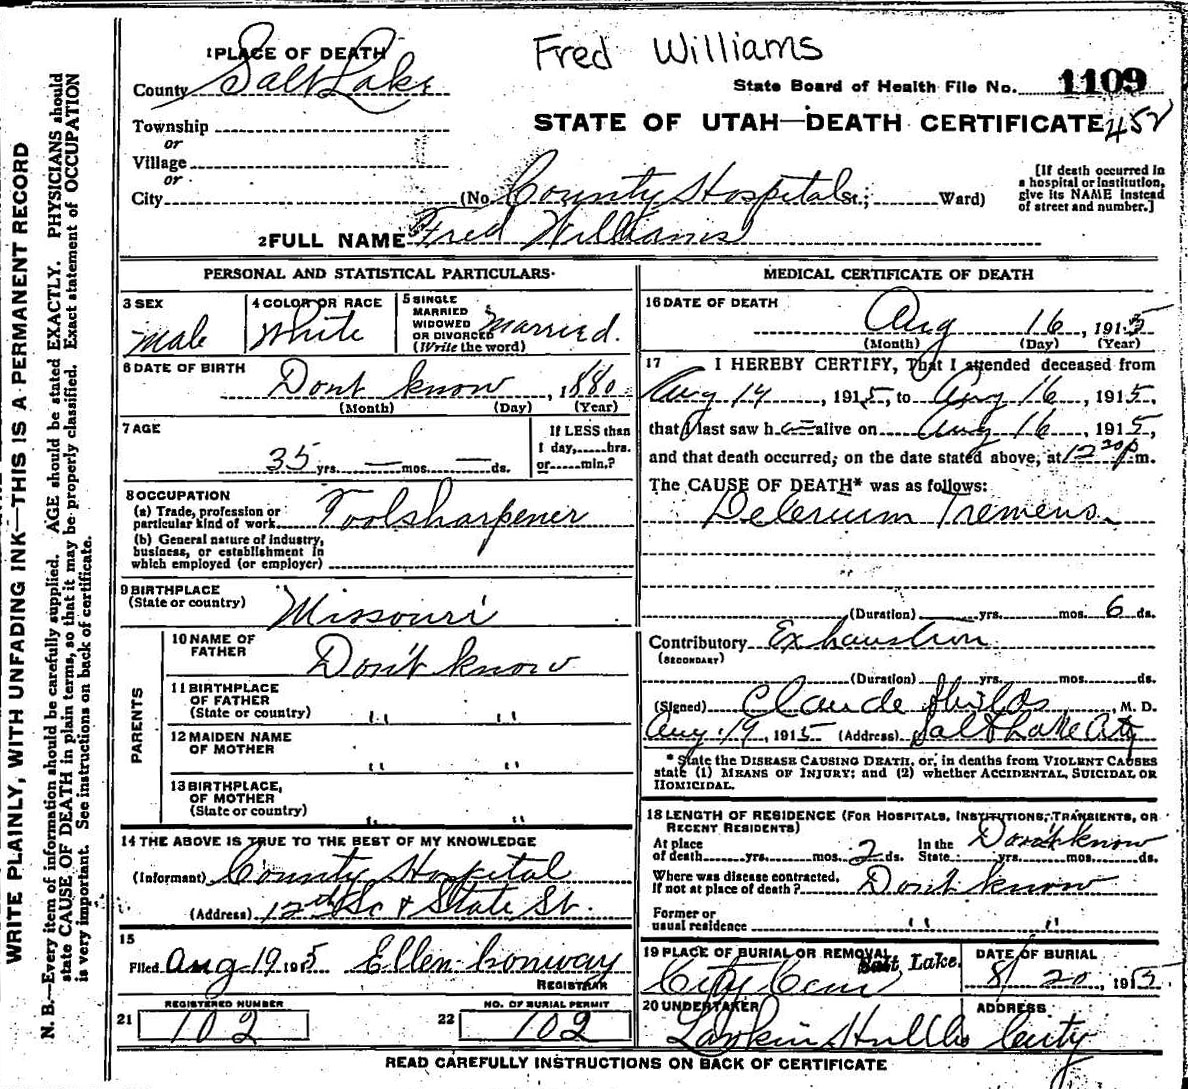 Fred Williams
1 PLACE OF DEATH
County Salt Lake
State Board of Health File No. 1109
Township
or
Village
or
City
STATE OF UTAH—DEATH CERTIFICATE 452
(No. County Hospital St.; Ward)
[If death occurred in
a hospital or institution,
give its NAME instead
of street and number.]
2 FULL NAME Fred Williams
PERSONAL AND STATISTICAL PARTICULARS
3 SEX
Male
4 COLOR OR RACE
White
5 SINGLE
MARRIED
WIDOWED
OR DIVORCED
(Write the word)
Married.
6 DATE OF BIRTH
Dont know, 1880
(Month) (Day) (Year)
7 AGE
35 yrs. — mos. — ds.
If LESS than
1 day,......hrs.
or......min.?
8 OCCUPATION
(a) Trade, profession or
particular kind of work Toolsharpener
(b) General nature of industry,
business, or establishment in
which employed (or employer)
9 BIRTHPLACE
(State or country) Missouri
PARENTS
10 NAME OF
FATHER Don't know
11 BIRTHPLACE
OF FATHER
(State or country) " "
12 MAIDEN NAME
OF MOTHER " "
13 BIRTHPLACE,
OF MOTHER
(State or country) " "
14 THE ABOVE IS TRUE TO THE BEST OF MY KNOWLEDGE
(Informant) County Hospital
(Address) 12th So & State St.
15
Filed Aug 19 1915 Ellen Conway
REGISTRAR
REGISTERED NUMBER
21 102
NO. OF BURIAL PERMIT
22 102
MEDICAL CERTIFICATE OF DEATH
16 DATE OF DEATH
Aug 16, 1915
(Month) (Day) (Year)
17 I HEREBY CERTIFY, That I attended deceased from
Aug 14, 1915, to Aug 16, 1915,
that I last saw h alive on Aug 16, 1915,
and that death occurred, on the date stated above, at 12 20 p m.
The CAUSE OF DEATH* was as follows:
Delerium Tremens.
(Duration) yrs. mos. 6 ds.
Contributory Exhaustion
(SECONDARY)
(Duration) yrs. mos. ds.
(Signed) Claude Shields, M. D.
Aug. 19, 1915 (Address) Salt Lake City
* State the DISEASE CAUSING DEATH, or, in deaths from VIOLENT CAUSES
state (1) MEANS OF INJURY; and (2) whether ACCIDENTAL, SUICIDAL OR
HOMICIDAL.
18 LENGTH OF RESIDENCE (FOR HOSPITALS, INSTITUTIONS, TRANSIENTS, OR
RECENT RESIDENTS)
At place
of death yrs. mos. 2 ds.
In the
State yrs. mos. ds. Don't know
Where was disease contracted,
if not at place of death? Don't know
Former or
usual residence " "
19 PLACE OF BURIAL OR REMOVAL
City Cem Salt Lake.
DATE OF BURIAL
8/20, 1915
20 UNDERTAKER
Larkin Hull Co
ADDRESS
City
READ CAREFULLY INSTRUCTIONS ON BACK OF CERTIFICATE
WRITE PLAINLY, WITH UNFADING INK—THIS IS A PERMANENT RECORD
N. B.—Every item of information should be carefully supplied. AGE should be stated EXACTLY. PHYSICIANS should
state CAUSE OF DEATH in plain terms, so that it may be properly classified. Exact statement of OCCUPATION
is very important. See instructions on back of certificate.